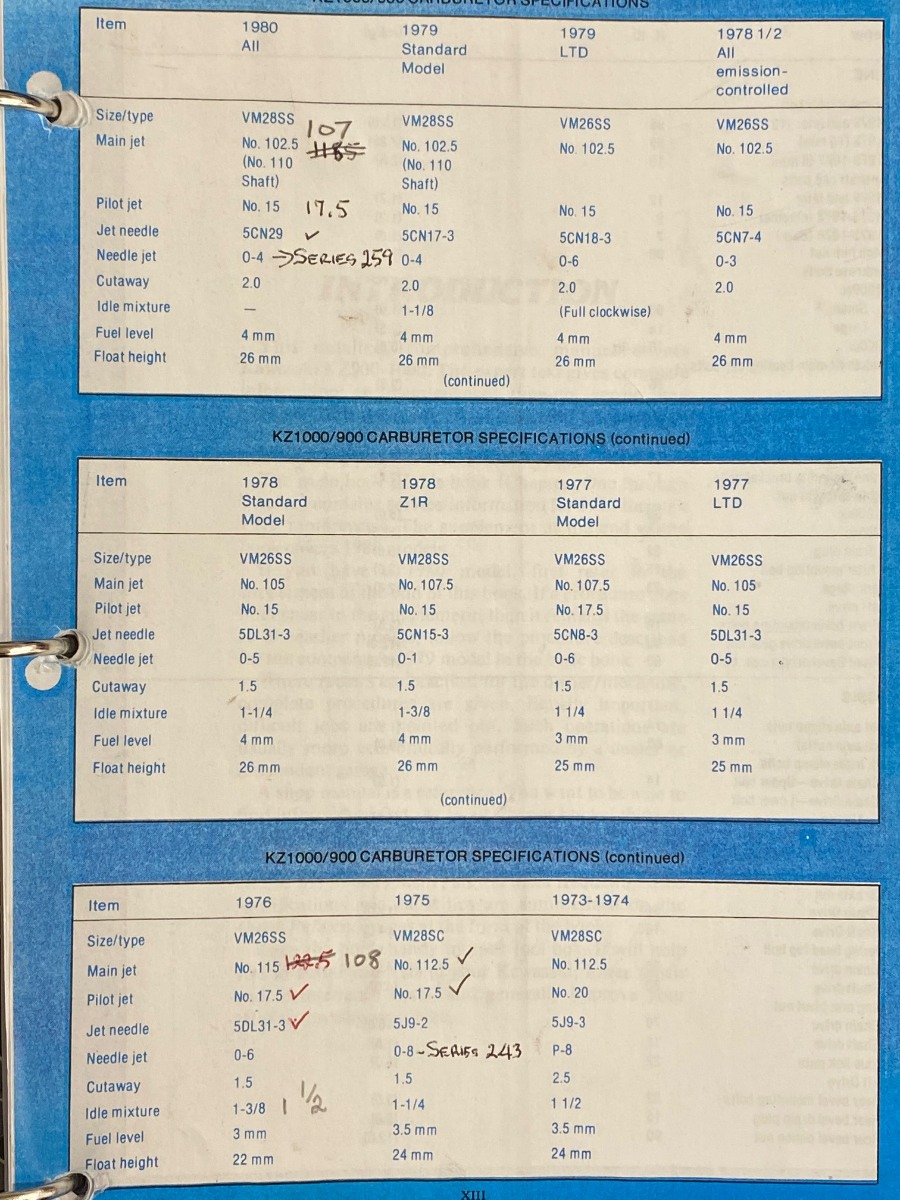 KZ1000/900 CARBURETOR SPECIFICATIONS
Item 1980 All 1979 Standard Model 1979 LTD 1978 1/2 All emission-controlled
Size/type VM28SS VM28SS VM26SS VM26SS
Main jet No. 102.5 (No. 110 Shaft) 107 No. 102.5 (No. 110 Shaft) No. 102.5 No. 102.5
Pilot jet No. 15 17.5 No. 15 No. 15 No. 15
Jet needle 5CN29 ✓ 5CN17-3 5CN18-3 5CN7-4
Needle jet 0-4 →SERIES 259 0-4 0-6 0-3
Cutaway 2.0 2.0 2.0 2.0
Idle mixture — 1-1/8 (Full clockwise)
Fuel level 4 mm 4 mm 4 mm 4 mm
Float height 26 mm 26 mm 26 mm 26 mm
(continued)
KZ1000/900 CARBURETOR SPECIFICATIONS (continued)
Item 1978 Standard Model 1978 Z1R 1977 Standard Model 1977 LTD
Size/type VM26SS VM28SS VM26SS VM26SS
Main jet No. 105 No. 107.5 No. 107.5 No. 105
Pilot jet No. 15 No. 15 No. 17.5 No. 15
Jet needle 5DL31-3 5CN15-3 5CN8-3 5DL31-3
Needle jet 0-5 0-1 0-6 0-5
Cutaway 1.5 1.5 1.5 1.5
Idle mixture 1-1/4 1-3/8 1 1/4 1 1/4
Fuel level 4 mm 4 mm 3 mm 3 mm
Float height 26 mm 26 mm 25 mm 25 mm
(continued)
KZ1000/900 CARBURETOR SPECIFICATIONS (continued)
Item 1976 1975 1973-1974
Size/type VM26SS VM28SC VM28SC
Main jet No. 115 122.5 108 No. 112.5 ✓ No. 112.5
Pilot jet No. 17.5 ✓ No. 17.5 ✓ No. 20
Jet needle 5DL31-3 ✓ 5J9-2 5J9-3
Needle jet 0-6 0-8 -SERIES 243 P-8
Cutaway 1.5 1.5 2.5
Idle mixture 1-3/8 1 1/2 1-1/4 1 1/2
Fuel level 3 mm 3.5 mm 3.5 mm
Float height 22 mm 24 mm 24 mm
XIII